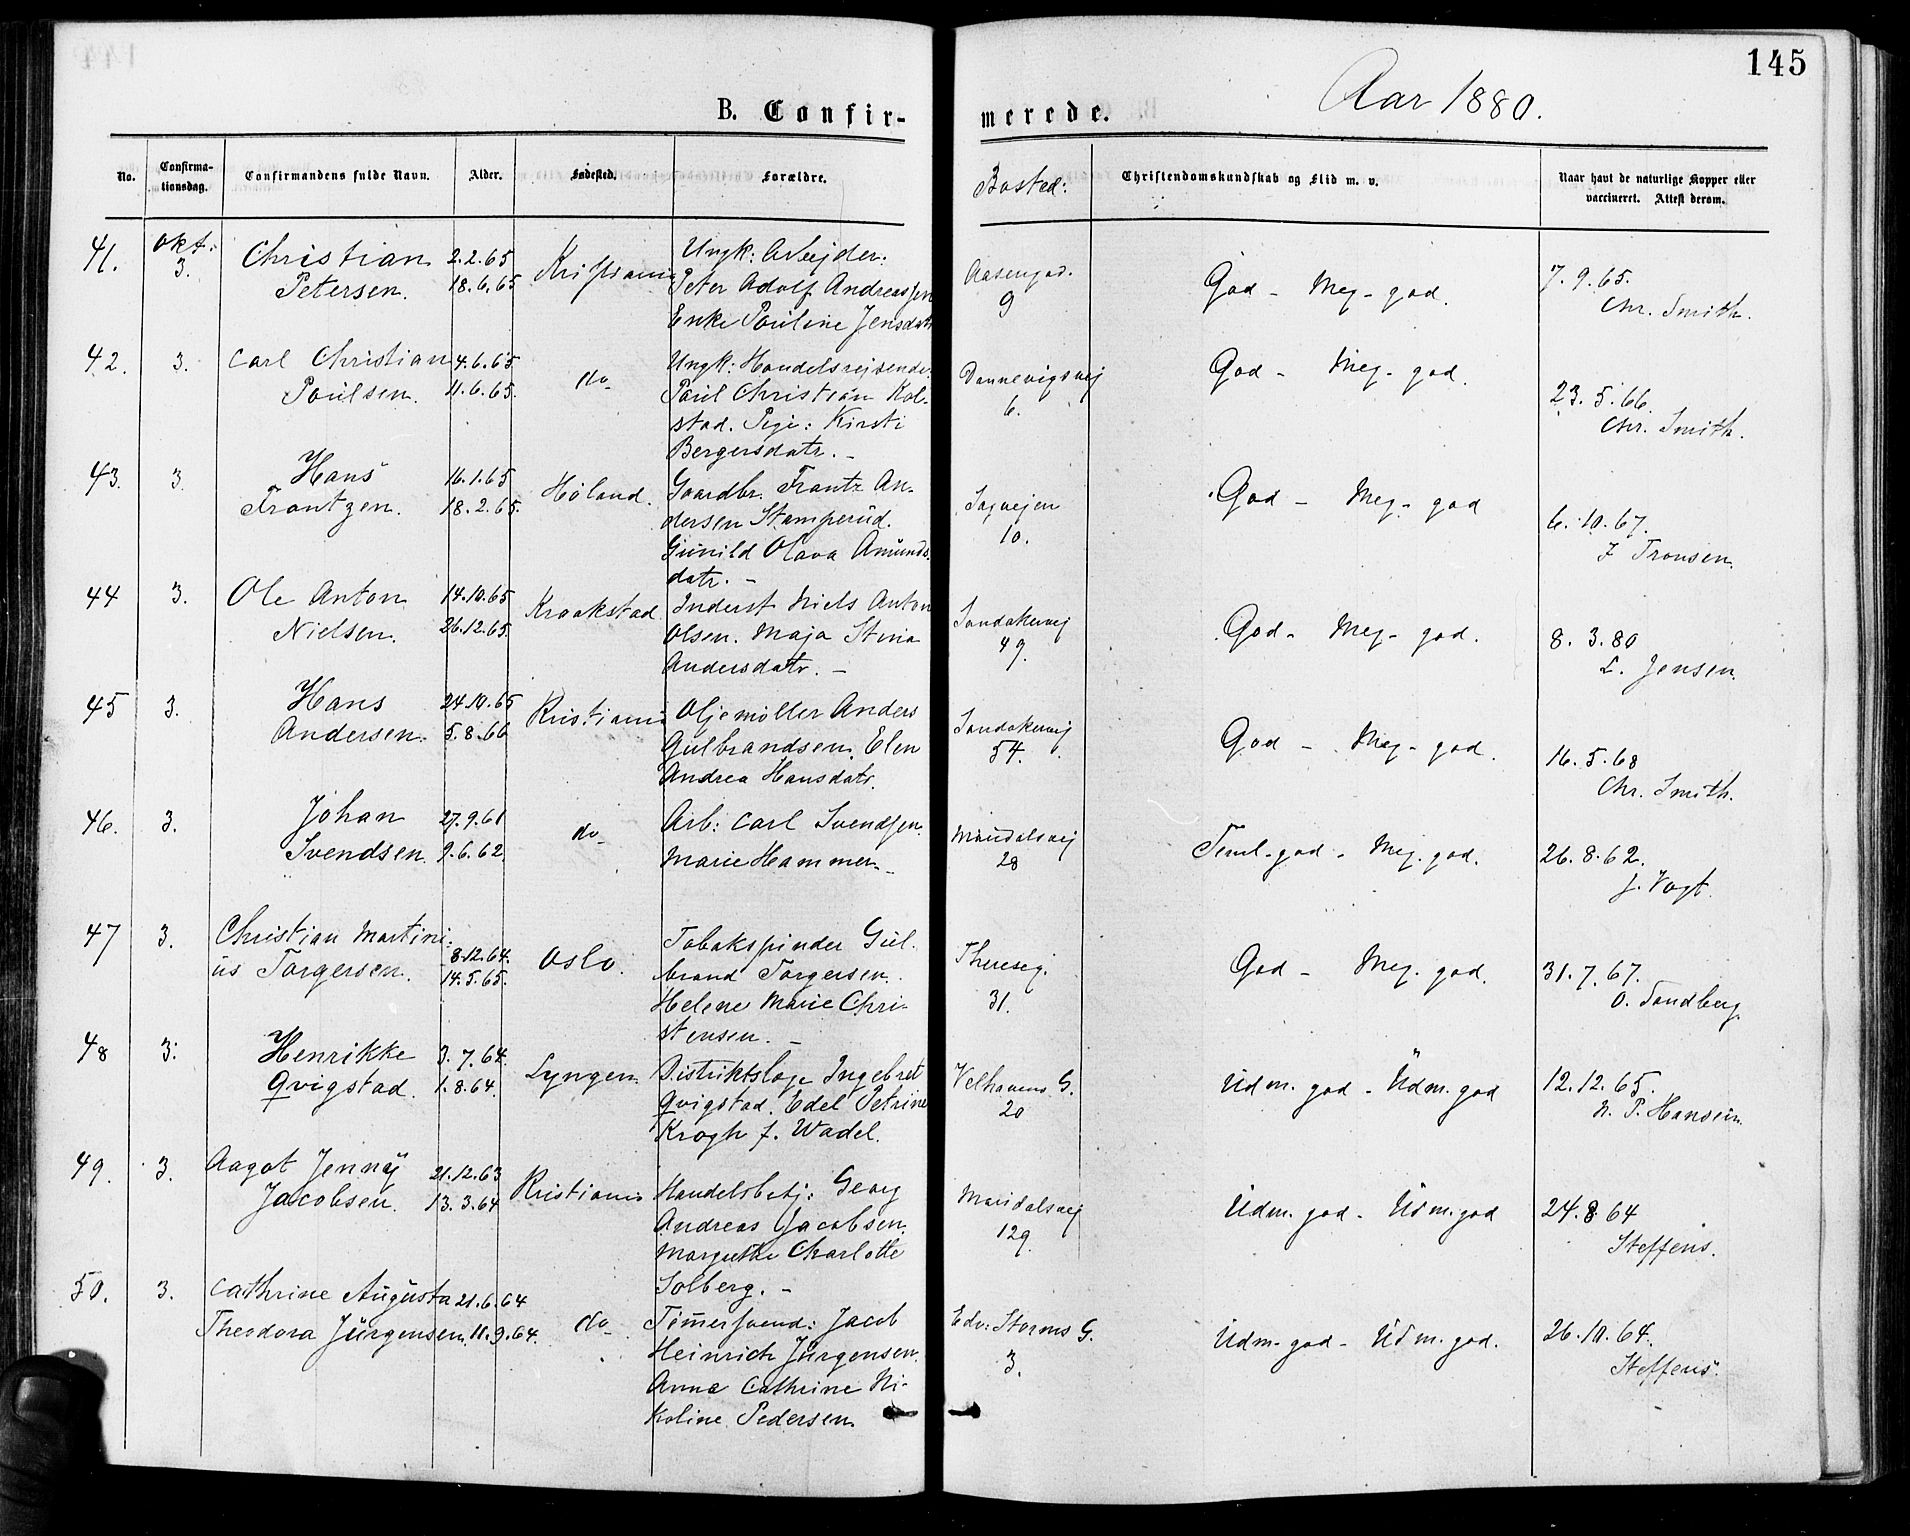 145
Aar 1880.
B. Confirmerede.
No. Confirmationsdag. Confirmandens fulde Navn. Alder. Fødested. Forældre. Bosted: Christendomskundskab og Flid m. v. Naar havt de naturlige Kopper eller vaccineret. Attest derom.
41. Okt. 3. Christian Petersen. 2.2.65 18.6.65 Kristiania Ungk: Arbejder: Peter Adolf Andreassen Enke Pauline Jensdatr Aasengad. 9 God - Meg - god. 7.9.65. Chr. Smith.
42. 3. Carl Christian Poulsen. 4.6.65 11.6.65. do Ungk: Handelsrejsende: Paul Christian Kolstad. Pige: Kirsti Bergersdatr. - Dannevigsvej 6. God - Meg - god. 23.5.66. Chr. Smith.
43. 3. Hans Frantzen. 16.1.65 18.2.65. Høland. Gaardbr. Frantz Andersen Stamperud. Gunild Olava Amundsdatr. - Sagvejen 10. God - Meg - god 6.10.67. J Tronsen.
44 3. Ole Anton Nielsen. 14.10.65 26.12.65. Kraakstad Inderst Niels Anton Olsen. Maja Stina Andersdatr. - Sandakervej 49. God - Meg - god. 8.3.80 L. Jensen.
45 3. Hans Andersen. 24.10.65 5.8.66 Kristiania Oljemøller Anders Gulbrandsen. Elen Andrea Hansdatr. Sandakervej 54. God - Meg - god. 16.5.68 Chr. Smith.
46. 3. Johan Svendsen. 27.9.61 9.6.62. do Arb: Carl Svendsen. Marie Hammer. - Maridalsvej 28 Teml. god - Meg. god. 26.8.62. J. Vogt.
47 3. Christian Martinius Torgersen. 8.12.64. 14.5.65. Oslo. Tobakspinder Gulbrand Torgersen. Helene Marie Christensen. - Thereseg. 31. God - Meg. god. 31.7.67. O. Sandberg.
48 3. Henrikke Qvigstad. 3.7.64. 1.8.64. Lyngen. Distriktslæge Ingebret Qvigstad. Edel Petrine Krogh f. Wadel. Velhavens G. 20 Udm. god - Udm. god 12.12.65. N. P. Hansen.
49. 3. Aagot Jenny Jacobsen. 21.12.63 13.3.64 Kristiania Handelsbetj: Georg Andreas Jacobsen. Margrethe Charlotte Solberg. - Maridalsvej 129. Udm. god - Udm. god 24.8 64 Steffens.
50. 3. Cathrine Augusta Theodora Jürgensen. 21.6.64 11.9.64. do Tømersvend: Jacob Heinrich Jürgensen. Anna Cathrine Nikoline Pedersen. Edv: Storms G. 3. Udm. god - Udm. god. 26.10.64. Steffens.